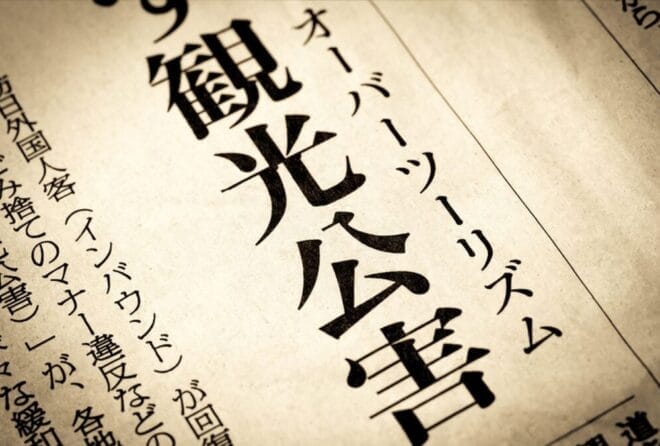 オーバーツーリズム
観光公害
訪日外国人客(インバウンド)が回復
ごみ捨てのマナー違反などの
公害)」が、各地
な緩和
道
から